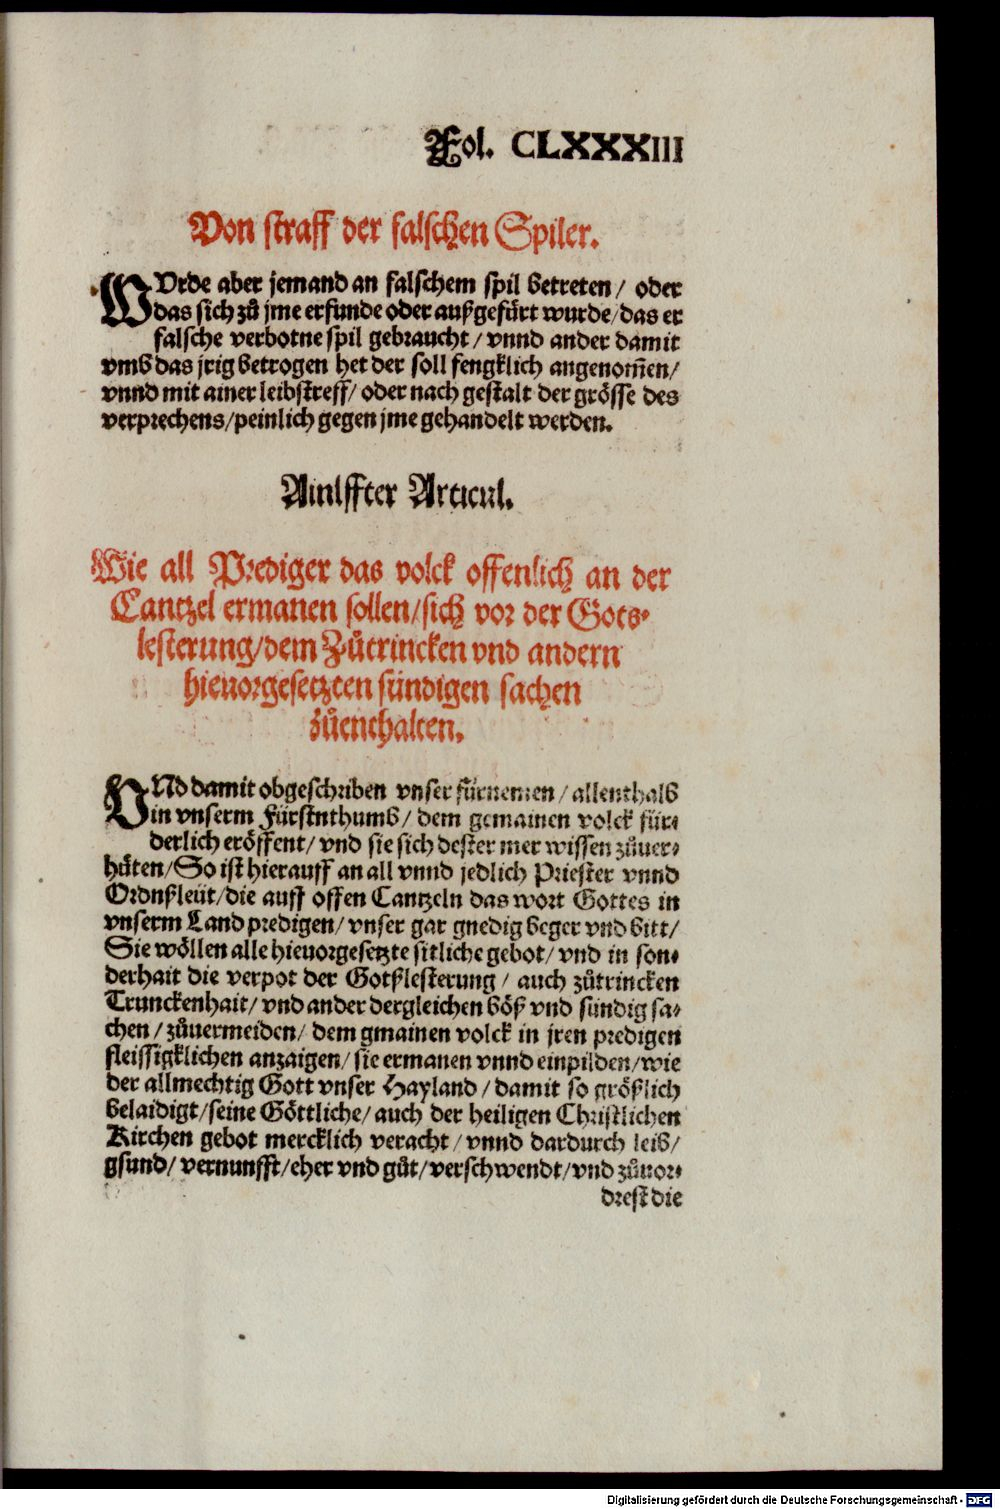 Fol. CLXXXIII
Von straff der falschen Spiler.
WUrde aber jemand an falschem spil betreten / oder
das sich zů jme erfunde oder außgefürt wurde / das er
falsche verbotne spil gebraucht / vnnd ander damit
vmb das jrig betrogen het der soll fengklich angenom̄en /
vnnd mit ainer leibstreff / oder nach gestalt der grösse des
verprechens / peinlich gegen jme gehandelt werden.
Ainlffter Articul.
Wie all Prediger das volck offenlich an der
Cantzel ermanen sollen / sich vor der Gots-
lesterung / dem Zůtrincken vnd andern
hieuorgesetzten sündigen sachen
zůenthalten.
VNd damit obgeschriben vnser fürnemen / allenthalb
in vnserm Fürstnthumb / dem gemainen volck für-
derlich eröffent / vnd sie sich dester mer wissen zůuer-
hüten / So ist hierauff an all vnnd jedlich Priester vnnd
Ordnßleüt / die auff offen Cantzeln das wort Gottes in
vnserm Land predigen / vnser gar gnedig beger vnd bitt /
Sie wöllen alle hieuorgesetzte sitliche gebot / vnd in son-
derhait die verpot der Gotßlesterung / auch zůtrincken
Trunckenhait / vnd ander dergleichen böß vnd sündig sa-
chen / zůuermeiden / dem gmainen volck in jren predigen
fleissigklichen anzaigen / sie ermanen vnnd einpilden / wie
der allmechtig Gott vnser Hayland / damit so größlich
belaidigt / seine Göttliche / auch der heiligen Christlichen
Kirchen gebot mercklich veracht / vnnd dardurch leib /
gsund / vernunfft / eher vnd gůt / verschwendt / vnd zůuor-
drest die
Digitalisierung gefördert durch die Deutsche Forschungsgemeinschaft - DFG